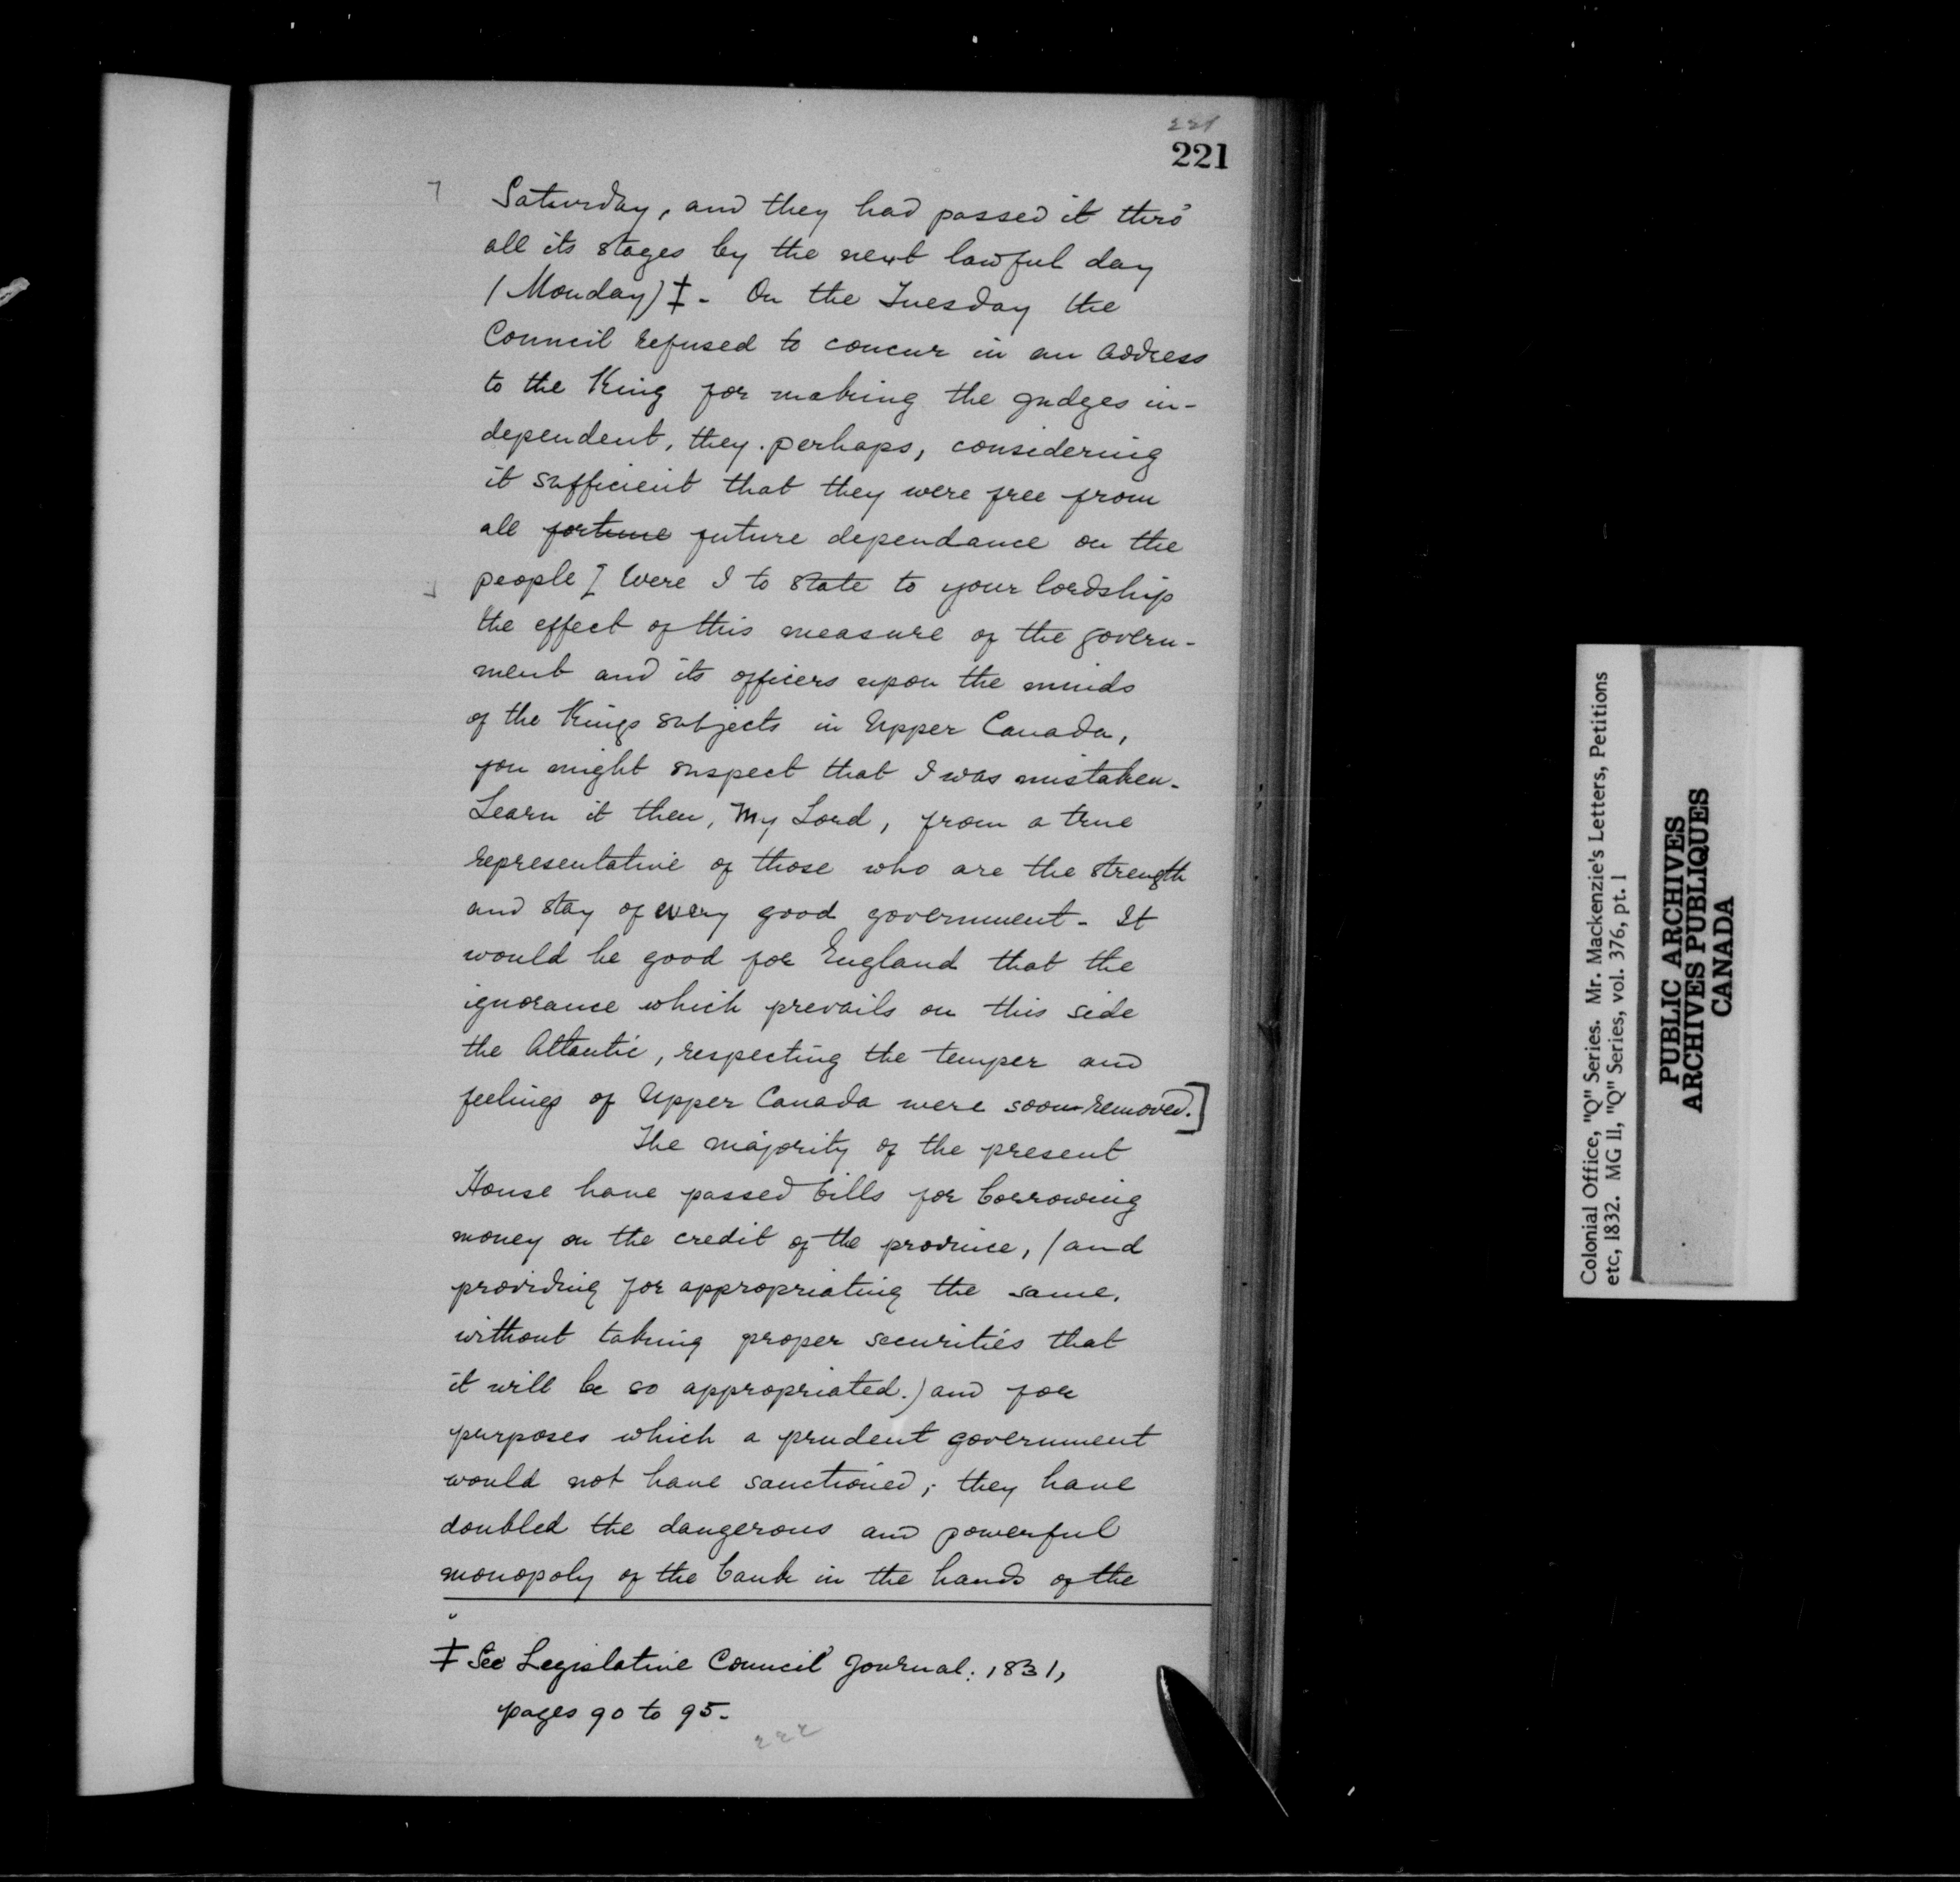 221
221
Saturday, and they had passed it thro'
all its stages by the next lawful day
(Monday) ‡ - On the Tuesday the
Council refused to concur in an address
to the King for making the judges in-
dependent, they perhaps, considering
it sufficient that they were free from
all fortune future dependance on the
people [ Were I to state to your lordship
the effect of this measure of the govern-
ment and its officers upon the minds
of the Kings subjects in Upper Canada,
you might suspect that I was mistaken.
Learn it then, My Lord, from a true
representative of those who are the strength
and stay of every good government - It
would be good for England that the
ignorance which prevails on this side
the Atlantic, respecting the temper and
feelings of Upper Canada were soon removed.]
The majority of the present
House have passed bills for borrowing
money on the credit of the province, (and
providing for appropriating the same,
without taking proper securities that
it will be so appropriated.) and for
purposes which a prudent government
would not have sanctioned; they have
doubled the dangerous and powerful
monopoly of the bank in the hands of the
‡ See Legislative Council Journal: 1831,
pages 90 to 95.
222
Colonial Office, "Q" Series. Mr. Mackenzie's Letters, Petitions
etc, 1832. MG 11, "Q" Series, vol. 376, pt. 1
PUBLIC ARCHIVES
ARCHIVES PUBLIQUES
CANADA